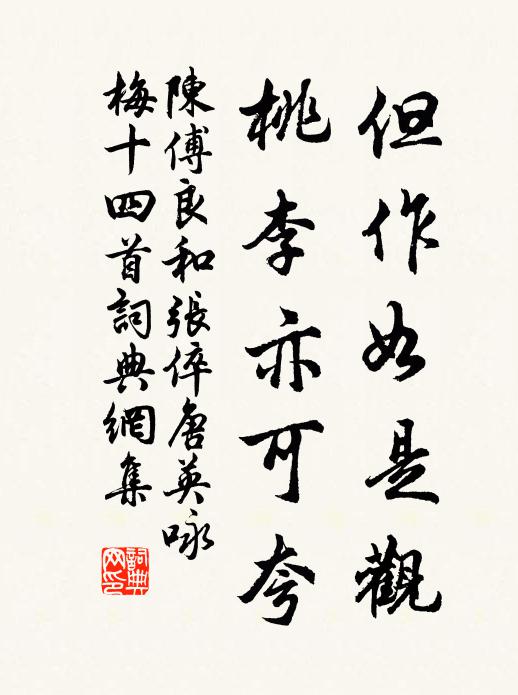 但作如是觀
桃李亦可夸
陳傅良和張倅唐英咏
梅十四首詞典網集
詞典網印